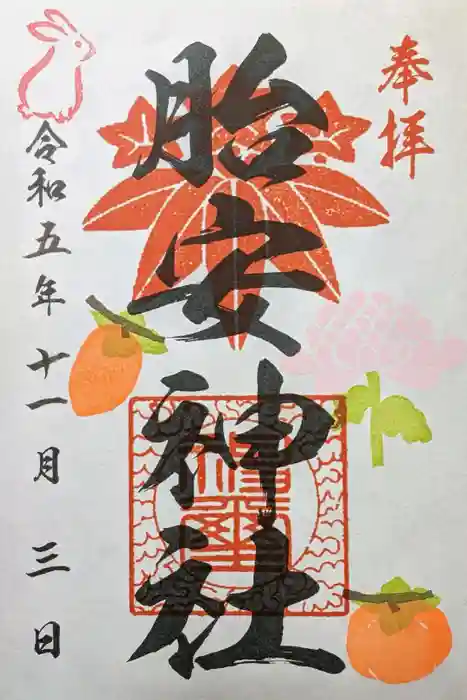 奉拝
胎安神社
令和五年十一月三日